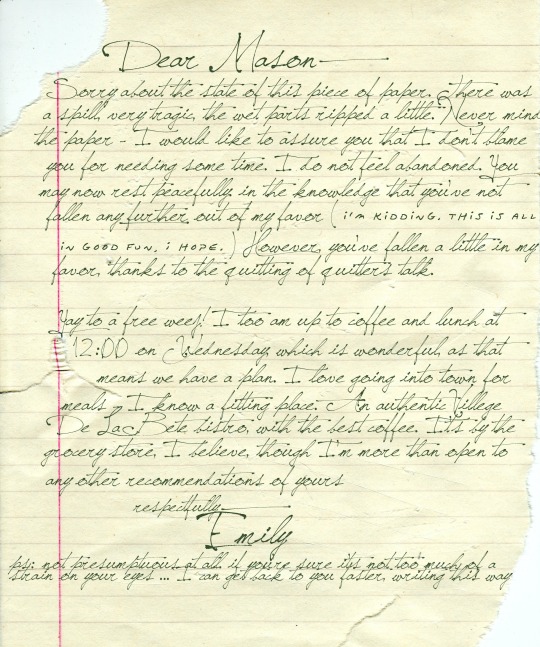 Dear Mason-
Sorry about the state of this piece of paper. There was
a spill, very tragic, the wet parts ripped a little. Never mind
the paper - I would like to assure you that I don't blame
you for needing some time. I do not feel abandoned. You
may now rest peacefully in the knowledge that you've not
fallen any further out of my favor (i'm KIDDING. THIS IS ALL
iN GOOD FUN, i HOPE.) However, you've fallen a little in my
favor, thanks to the quitting of quitter's talk.
Yay to a free week! I too am up to coffee and lunch at
12:00 on Wednesday, which is wonderful, as that
means we have a plan. I love going into town for
meals, I know a fitting place; An authentic Villege
De La Bete bistro, with the best coffee. It's by the
grocery store, I believe, though I'm more than open to
any other recommendations of yours
respectfully-
Emily
ps: not presumptuous at all, if you're sure it's not too much of a
strain on your eyes ... I can get back to you faster, writing this way